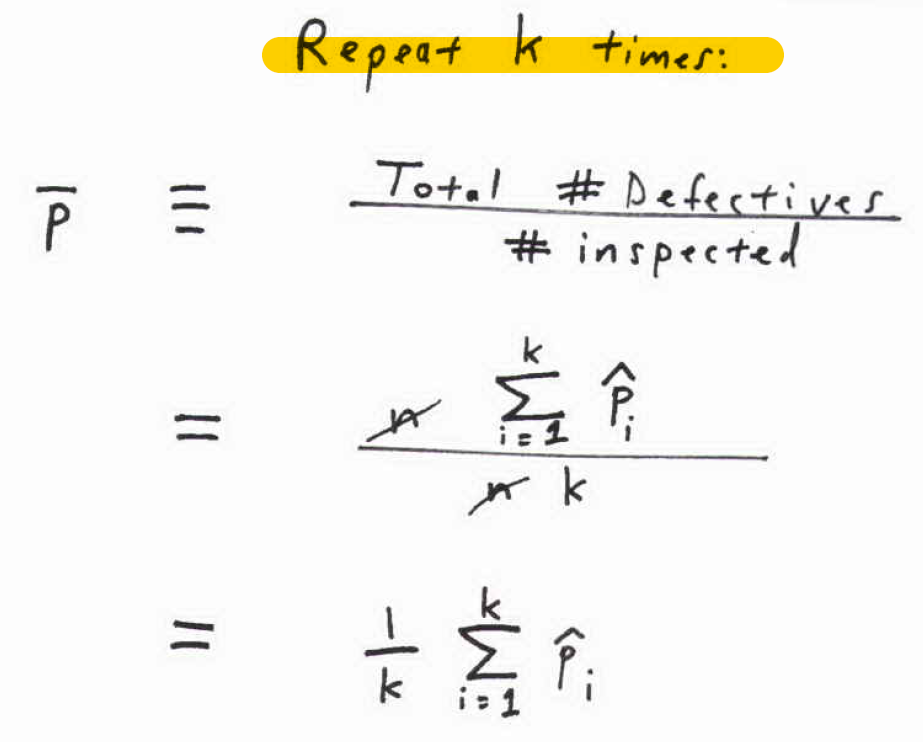 Repeat k times:
p̄ ≡ Total # Defectives / # inspected
= n̸ ∑_{i=1}^{k} p̂_i / n̸ k
= 1/k ∑_{i=1}^{k} p̂_i